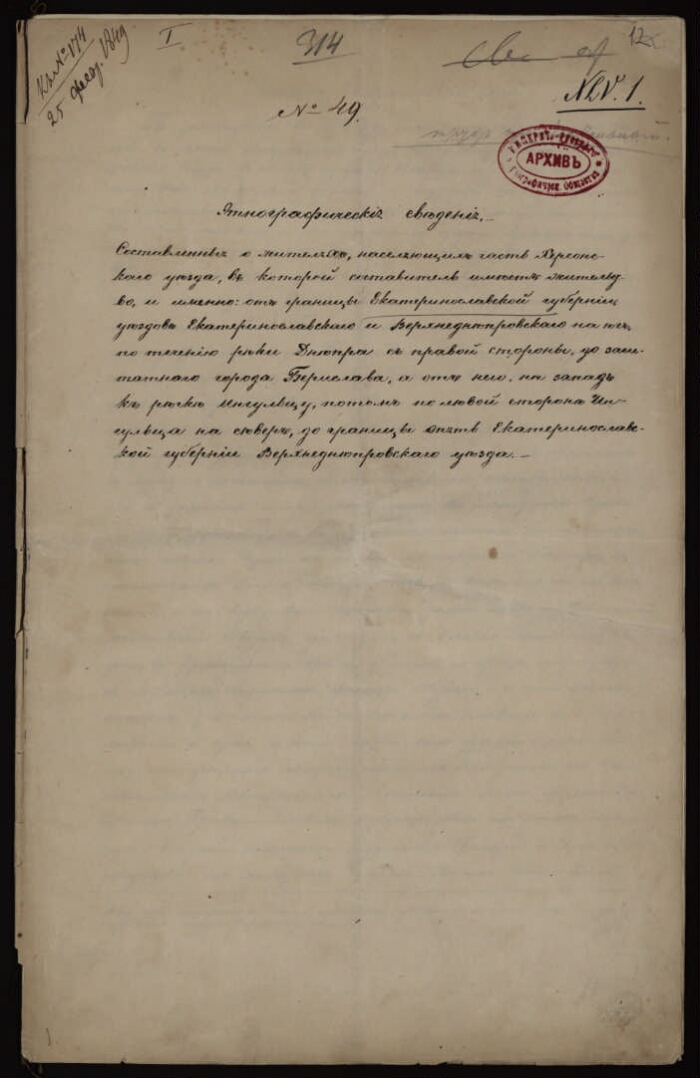 Къ № 174
25 февр. 1849
I
314
12
№ 49.
XLV. 1.
ИМПЕРАТ. РУССКАГО
АРХИВЪ
Географическ. Общества
Этнографическіе свѣденіе,
Составленныя о жителяхъ, населяющихъ часть Херсонс-
каго уѣзда, въ которой составитель имѣетъ житель
во, и именно: отъ границы Екатеринославской губерніи
уѣздовъ Екатеринославскаго и Верхнеднѣпровскаго на югъ
по теченію рѣки Днѣпра съ правой стороны, до заш-
татнаго города Берислава, а отъ него, на западъ
къ рѣчкѣ Ингульцу, потомъ по лѣвой сторонѣ Ин-
гульца на сѣверъ, до границы опять Екатеринославс-
кой губерніи Верхнеднѣпровскаго уѣзда.—